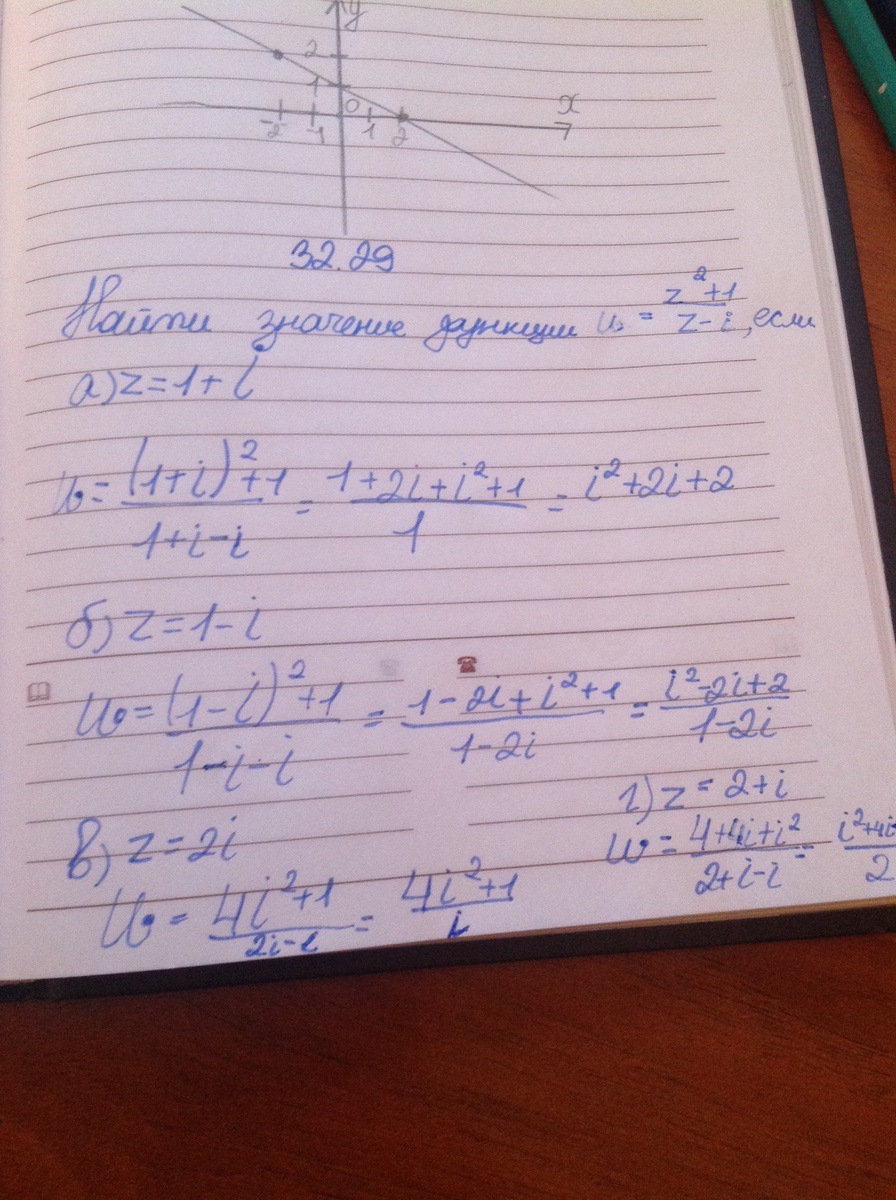 y
2
1
0 x
-2 -1 1 2
32.29
Найти значение функции w = \frac{z^2+1}{z-i}, если
а) z = 1+i
w = \frac{(1+i)^2+1}{1+i-i} = \frac{1+2i+i^2+1}{1} = i^2+2i+2
б) z = 1-i
w = \frac{(1-i)^2+1}{1-i-i} = \frac{1-2i+i^2+1}{1-2i} = \frac{i^2-2i+2}{1-2i}
в) z = 2i
w = \frac{4i^2+1}{2i-i} = \frac{4i^2+1}{i}
г) z = 2+i
w = \frac{4+4i+i^2}{2+i-i} = \frac{i^2+4i}{2}